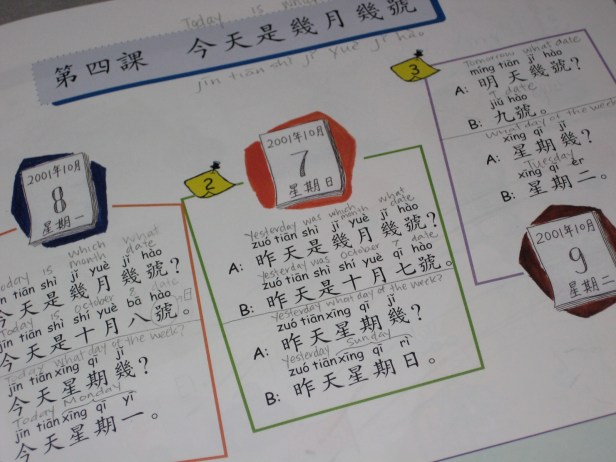 Today is what
第四課 今天是幾月幾號
jīn tiān shì jǐ yuè jǐ hào
2001年10月
8
星期一
Today is which month what date
jīn tiān shì jǐ yuè jǐ hào
今天是幾月幾號?
Today is October 8 date
jīn tiān shì shí yuè bā hào
今天是十月八號。
Today what day of the week?
jīn tiān xīng qí jǐ
今天星期幾?
Today Monday
jīn tiān xīng qí yī
今天星期一。
2
2001年10月
7
星期日
Yesterday was which month what date
zuó tiān shì jǐ yuè jǐ hào
A: 昨天是幾月幾號?
Yesterday was October 7 date
zuó tiān shì shí yuè qī hào
B: 昨天是十月七號。
Yesterday what day of the week?
zuó tiān xīng qí jǐ
A: 昨天星期幾?
Yesterday Sunday
zuó tiān xīng qí rì
B: 昨天星期日。
3
Tomorrow what date
míng tiān jǐ hào
A: 明天幾號?
9 date
jiǔ hào
B: 九號。
What day of the week
xīng qí jǐ
A: 星期幾?
Tuesday
xīng qí èr
B: 星期二。
2001年10月
9
星期二